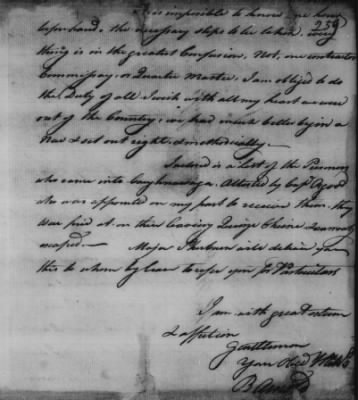 it is impossible to know one hour
beforehand, the necessary steps to be taken, every
259
thing is in the greatest Confusion. Not, one contractor
Commissary, or Quarter Master, I am oblig'd to do
the Duty of all. I wish with all my heart we were
out of the Country, we had much better begin a
new & set out right, & methodically.—
Inclosed is a list of the Prisoners
who came into Caughnawaga. Attested by Capt
who was appointed on my part to receive them. they
was fired at on their leaving Quinze Chiens & narrowly
escaped.— Major Sherburn will deliver you
this to whom beg leave to refer you for Particulars
I am with great esteem
& affection
Gentlemen
Your Obed
B Arnold